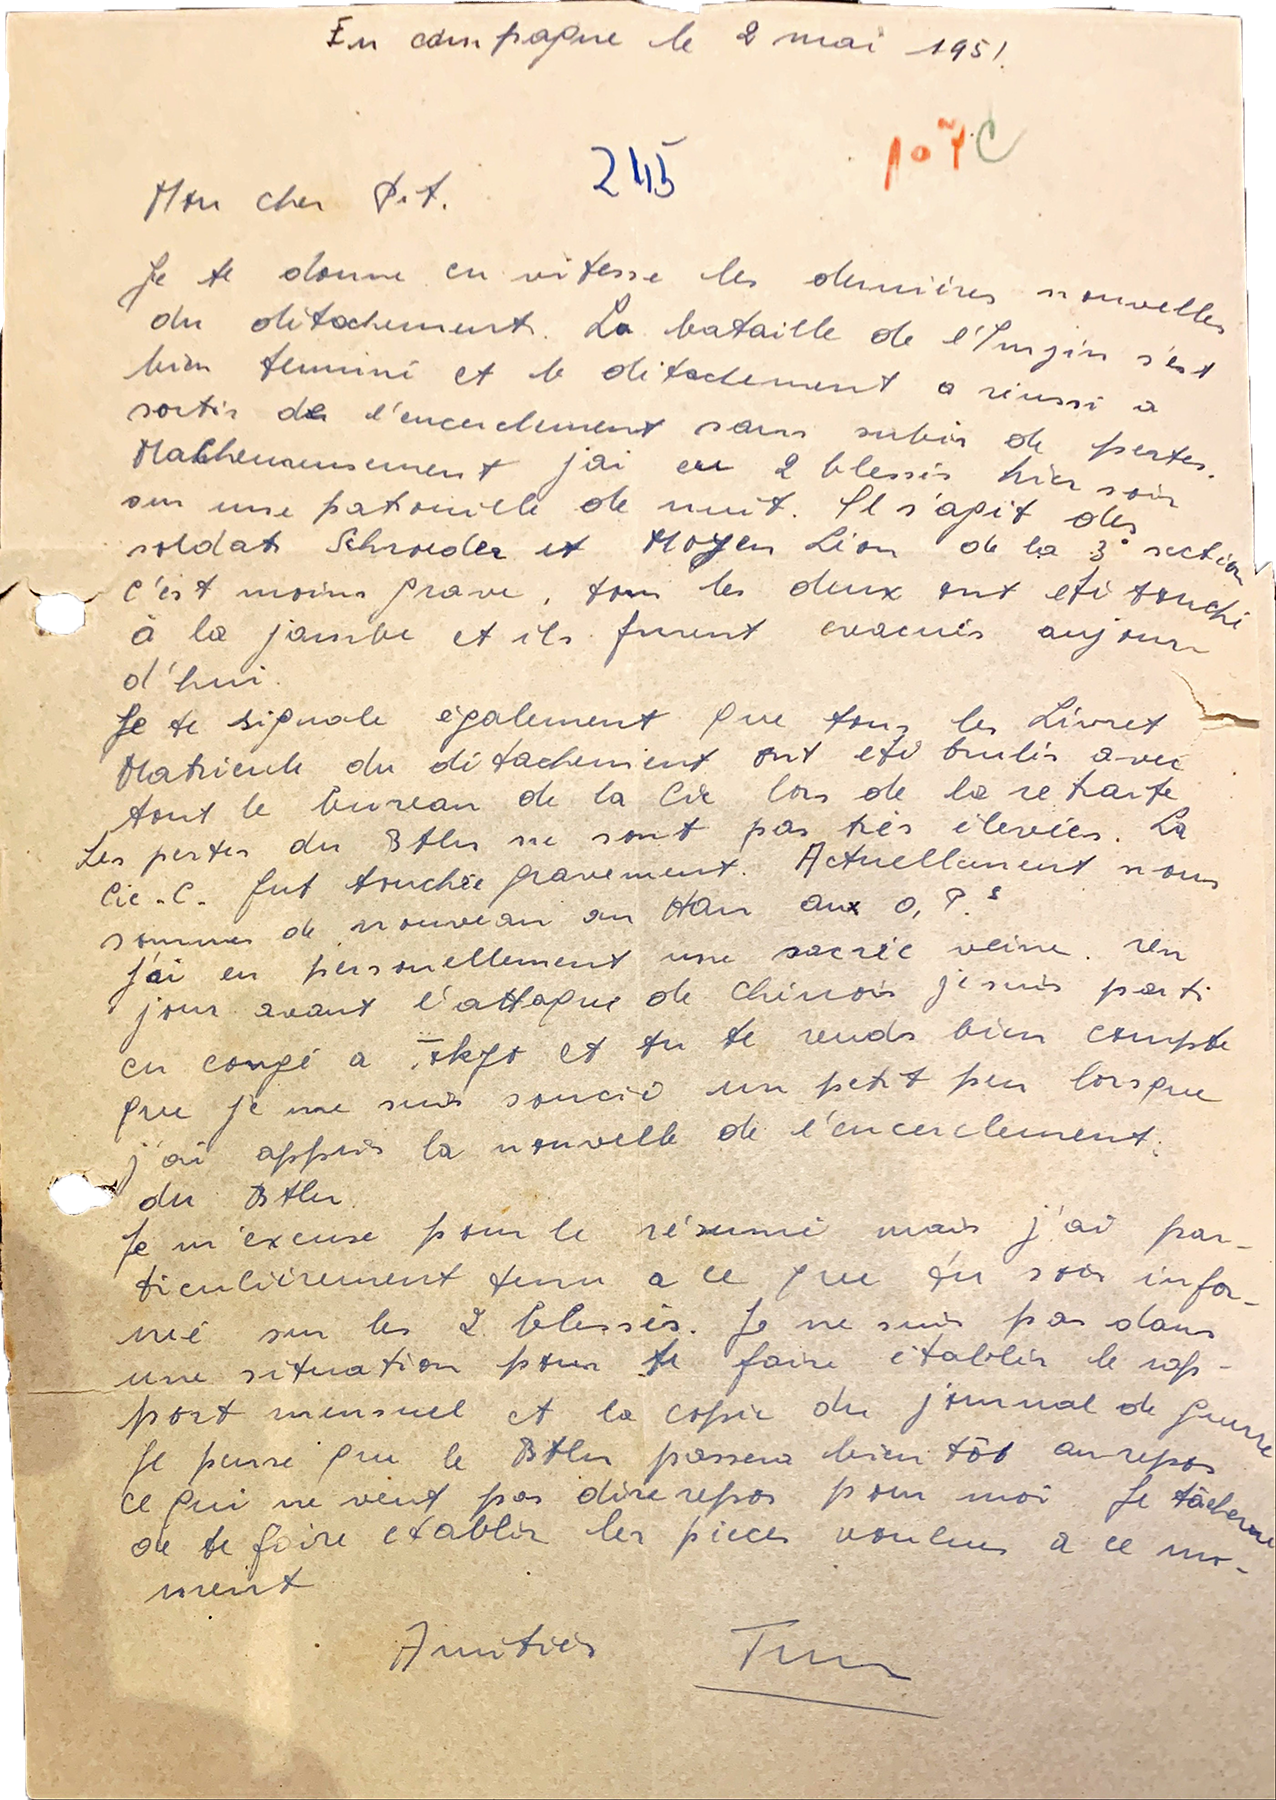 En campagne le 2 mai 1951.
245
Mon cher P.t.
Je te donne en vitesse les dernières nouvelles
du détachement. La bataille de l'Imzin s'est
bien terminé et le détachement a réussi a
sortir de l'encerclement sans subir de pertes.
Malheureusement j'ai eu 2 blessés hier soir
sur une patrouille de nuit. Il s'agit des
soldats Schroeder et Moyen Léon de la 3° section
c'est moins grave, tous les deux ont été touché
à la jambe et ils furent evacués aujour
d'hui.
Je te signale également que tous les Livret
Matricule du détachement ont été brulés avec
tout le bureau de la Cie lors de la retraite
Les pertes du Btln ne sont pas très élevées. La
Cie.C. fut touchée gravement. Actuellement nous
sommes de nouveau au Han aux O.P.s
J'ai eu personellement une sacrée veine. Un
jour avant l'attaque de Chinois je suis parti
en congé a Tokyo et tu te rends bien compte
que je me suis soucié un petit peu lorsque
j'ai appris la nouvelle de l'encerclement.
du Btln.
Je m'excuse pour le résumé mais j'ai par-
ticulièrement tenu a ce que tu sois infor-
mé sur les 2 blessés. Je ne suis pas dans
une situation pour te faire établir le rap-
port mensuel et la copie du journal de guerre
Je pense que le Btln passera bientôt au repos
ce qui ne veut pas dire repos pour moi. Je tâcherai
de te faire établir les pieces voulues a ce mo-
ment
Amitiés